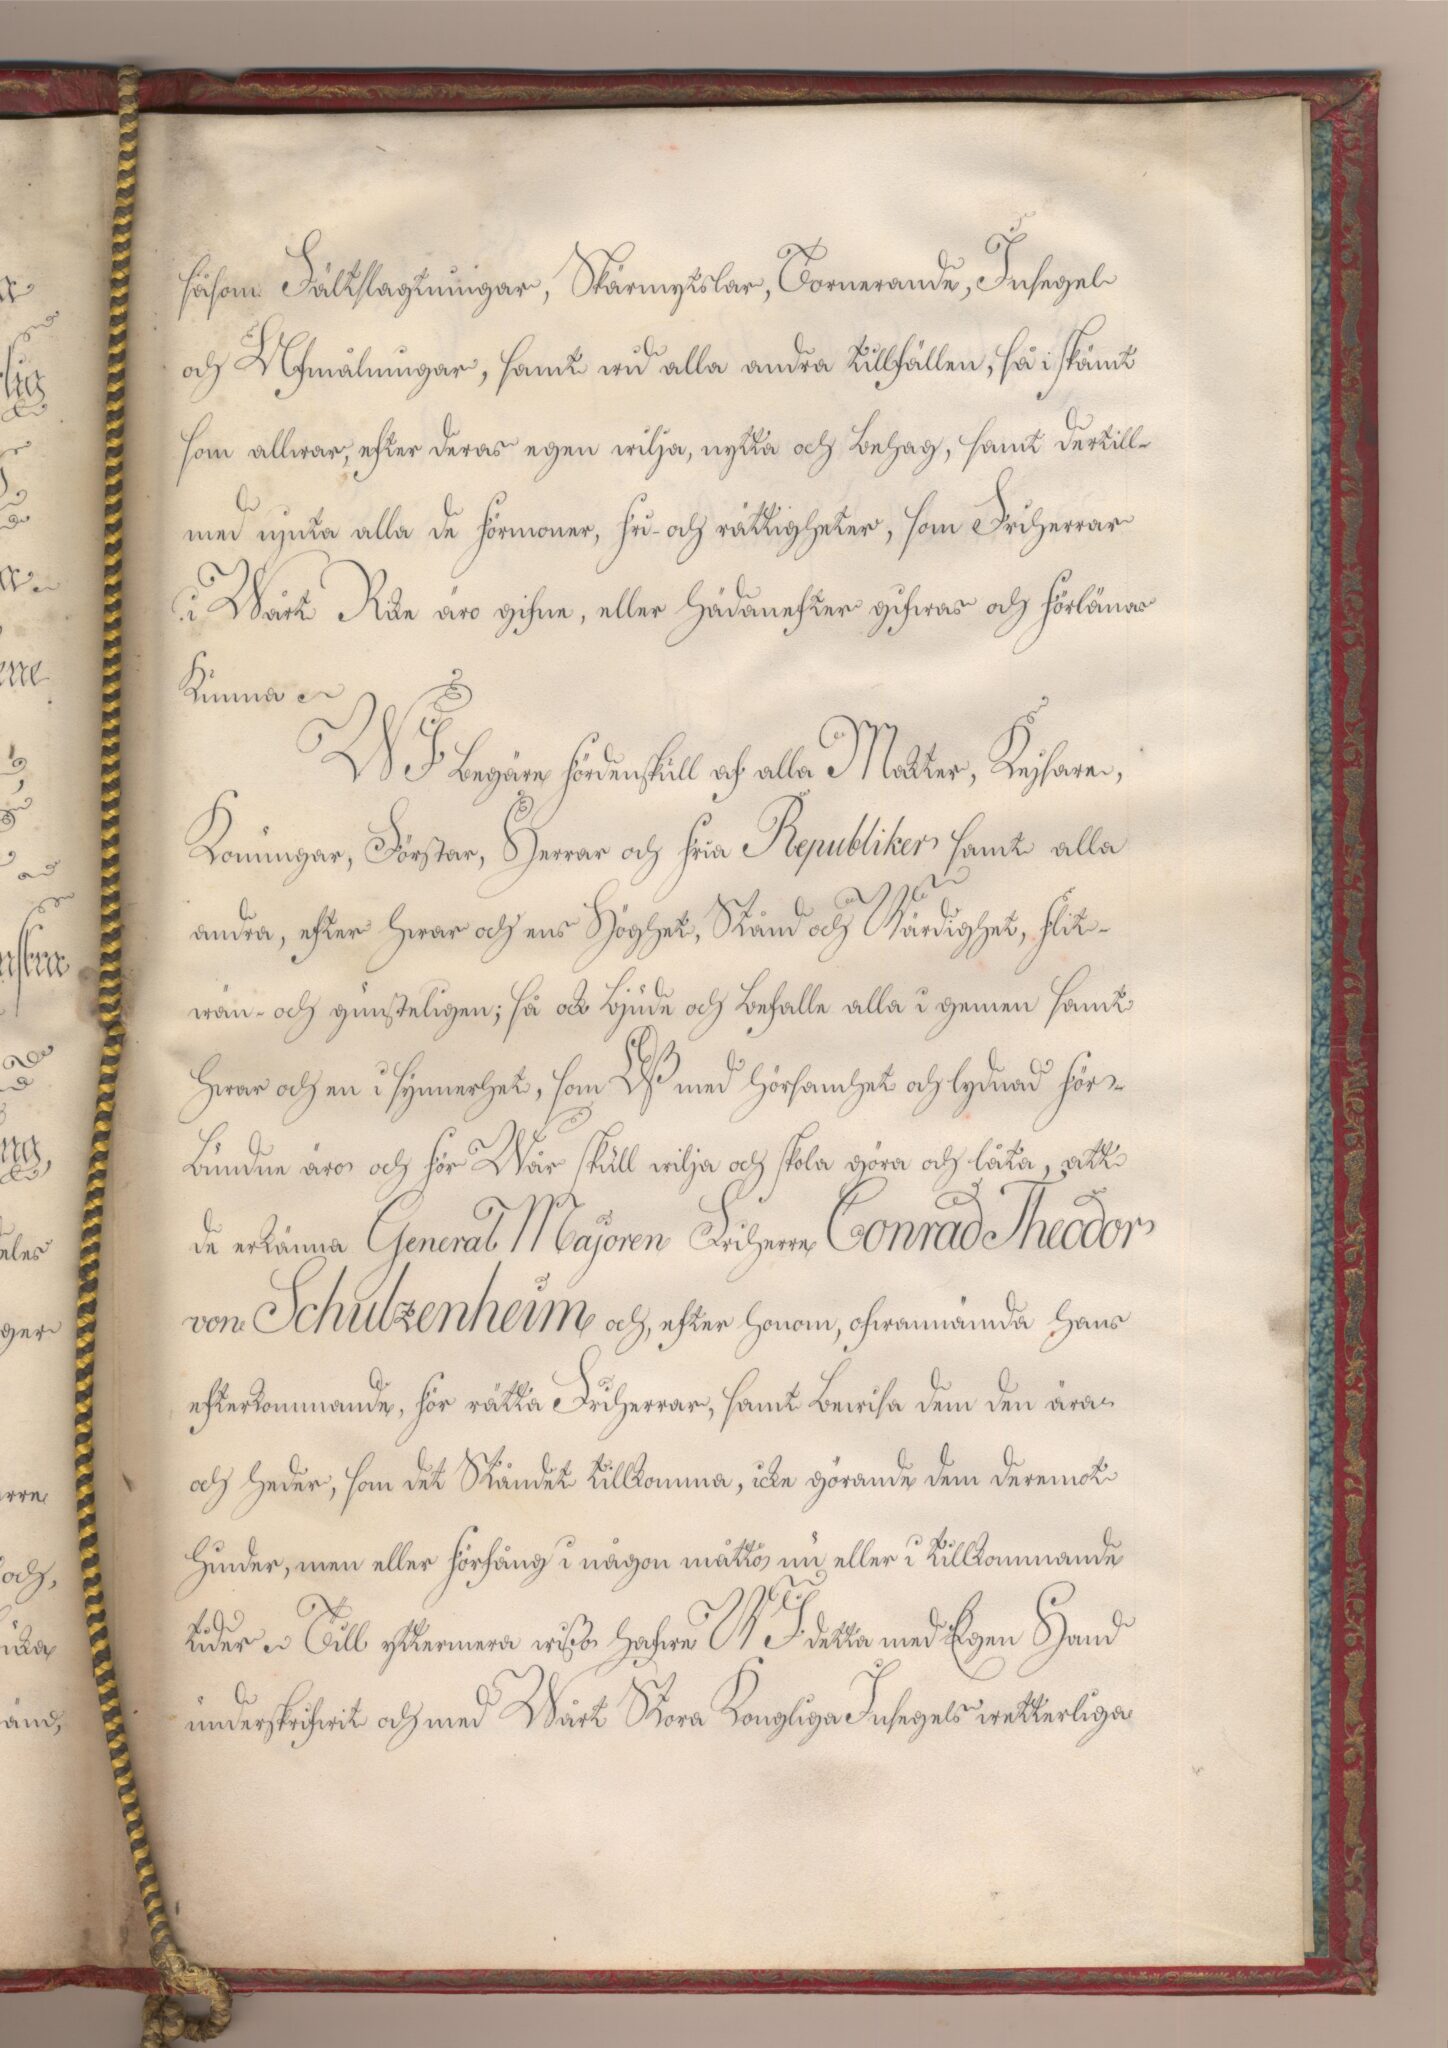 såsom Fältslagtningar, Skärmytslar, Tornerande, Insegel
och Afmålningar, samt wid alla andra tillfällen, så i skämt
som allwar, efter deras egen wilja, nytta och behag, samt dertill-
med njuta alla de förmoner, fri- och rättigheter, som Friherrar
i Wårt Rike äro gifne, eller hädanefter gifwas och förlänas
kunna
WI begäre fördenskull af alla Makter, Kejsare,
Konungar, Förstar, Herrar och fria Republiker samt alla
andra, efter hwar och ens Höghet, Stånd och Wärdighet, flit-
wän- och gunsteligen; så ock bjude och befalle alla i gemen samt
hwar och en i synnerhet, som Oss med hörsamhet och lydnad för-
bundne äro och för Wår skull wilja och skola göra och låta, att
de erkänna General Majoren Friherre Conrad Theodor
von Schulzenheim och, efter honom, ofwannämnda hans
efterkommande, för rätta Friherrar, samt bewisa dem den ära
och heder, som det Ståndet tillkomma, icke görande dem deremot
hinder, men eller förfång i någon måtto nu eller i tillkommande
tider Till yttermera wisso hafwe WI detta med Egen Hand
underskrifwit och med Wårt Stora Kongliga Insegels wetterliga